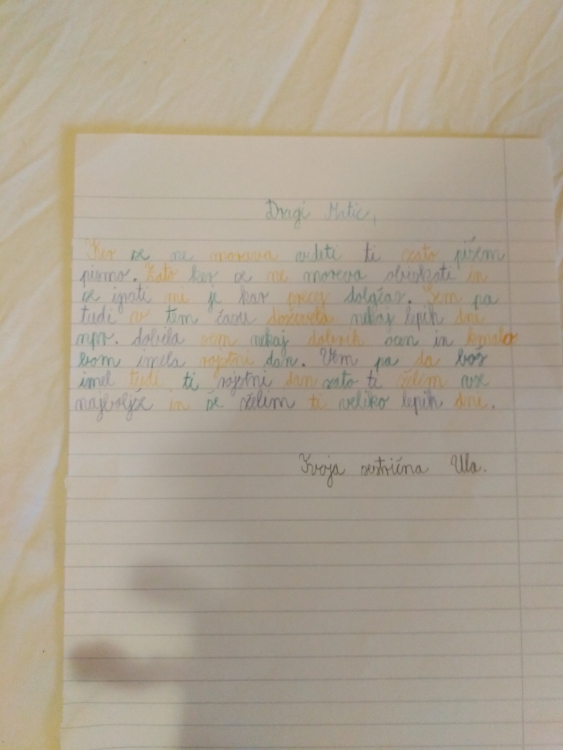 Dragi Matic,
Ker se ne moreva videti ti zato pišem
pismo. Zato ker se ne moreva obiskati in
se igrati mi je kar precej dolgčas. Sem pa
tudi v tem času doživela nekaj lepih dni
npr. dobila sem nekaj dobrih ocen in kmalu
bom imela rojstni dan. Vem pa da boš
imel tudi ti rojstni dan zato ti želim vse
najboljše in še želim ti veliko lepih dni.
Tvoja sestrična Ula.